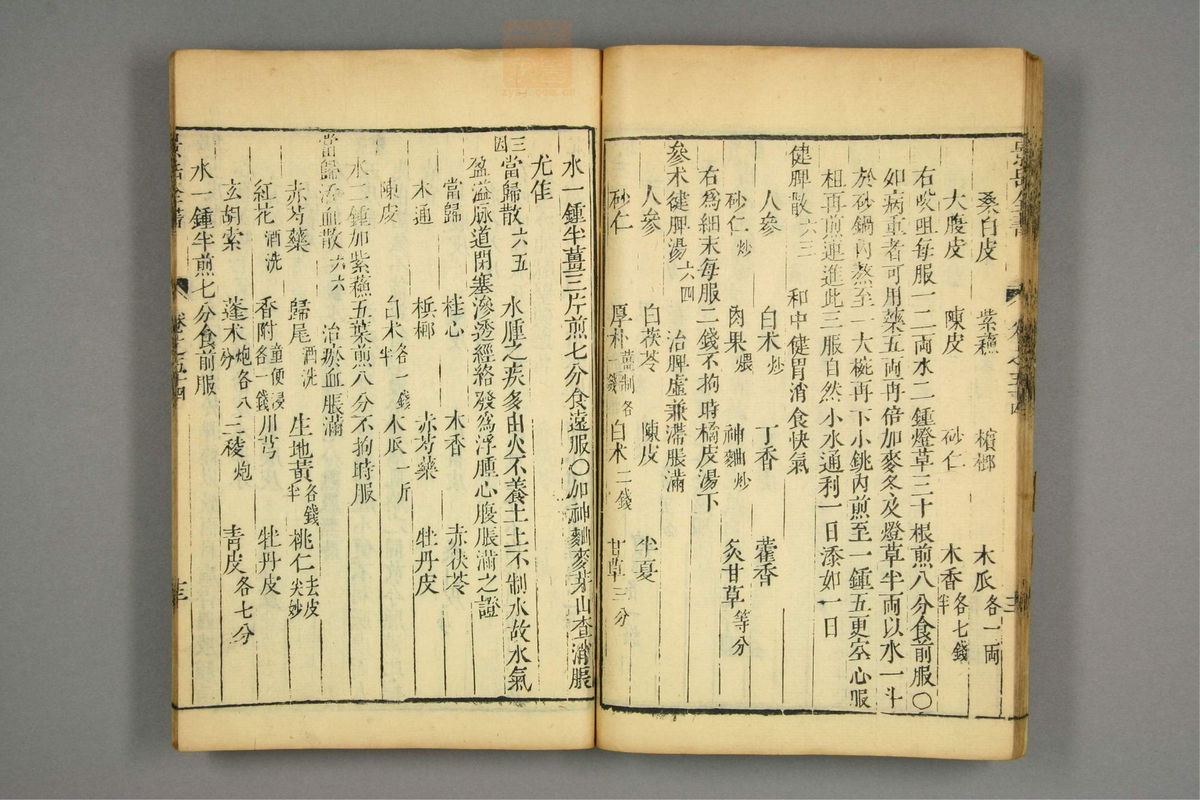 桑白皮 紫蘇 檳榔 木瓜各一兩
大腹皮 陳皮 砂仁 木香各七錢半
右㕮咀每服一二兩水二鍾燈草三十根煎八分食前服〇
如病重者可用藥五兩再倍加麥冬及燈草半兩以水一斗
於砂鍋內熬至一大椀再下小銚內煎至一鍾五更空心服
粗再煎連進此三服自然小水通利一日添如一日
健脾散六三 和中健胃消食快氣
人參 白朮炒 丁香 藿香
砂仁炒 肉果煨 神麯炒 炙甘草等分
右爲細末每服二錢不拘時橘皮湯下
參朮健脾湯六四 治脾虛兼滯脹滿
人參 白茯苓 陳皮 半夏
砂仁 厚朴薑制各一錢 白朮二錢 甘草三分
水一鍾半薑三片煎七分食遠服〇加神麯麥芽山查消脹
尤佳
三因當歸散六五 水腫之疾多由火不養土土不制水故水氣
盈溢脉道閉塞滲透經絡發爲浮腫心腹脹滿之證
當歸 桂心 木香 赤茯苓
木通 梹榔 赤芍藥 牡丹皮
陳皮 白朮各一錢半 木瓜一斤
水二鍾加紫蘇五葉煎八分不拘時服
當歸活血散六六 治瘀血脹滿
赤芍藥 歸尾酒洗 生地黃各錢半 桃仁去皮尖炒
紅花酒洗 香附童便浸各一錢 川芎 牡丹皮
玄胡索 蓬朮炮各八分 三稜炮 青皮各七分
水一鍾半煎七分食前服
景岳全書 卷之五十四